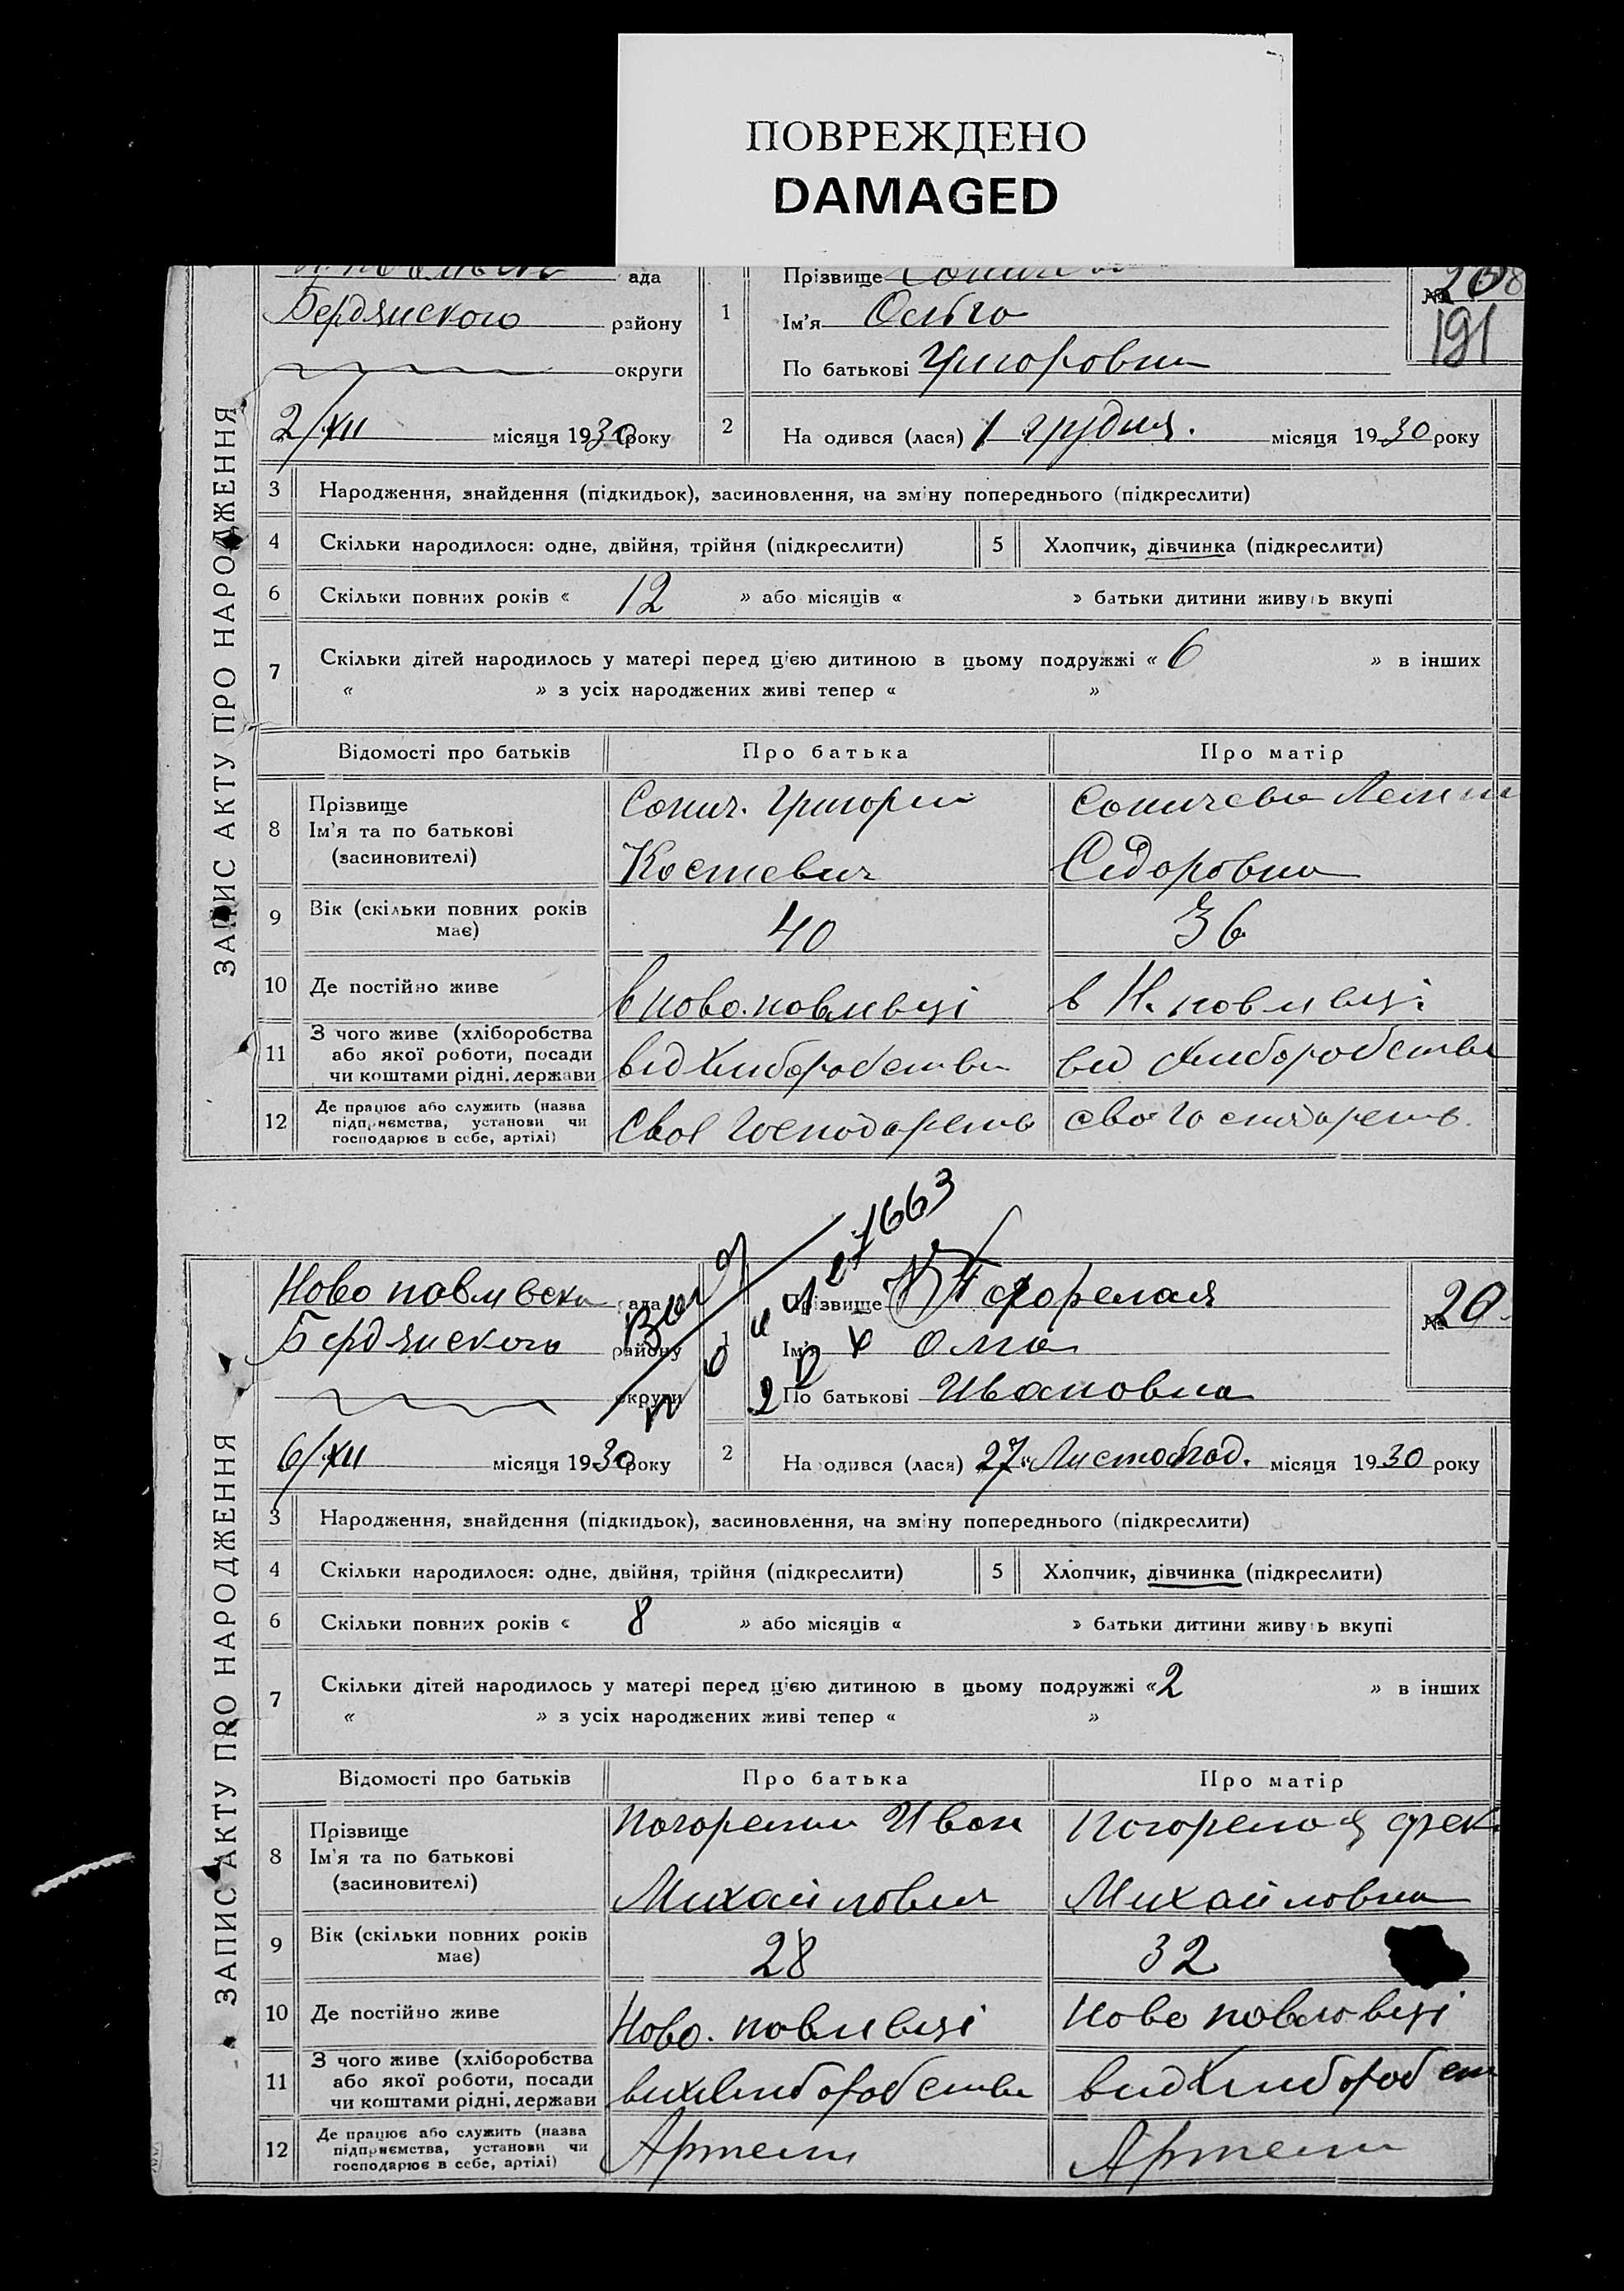 ПОВРЕЖДЕНО
DAMAGED
ЗАПИС АКТУ ПРО НАРОДЖЕННЯ
ада
Бердянского району
округи
2/XII місяця 1930 року
1
Прізвище
Ім'я Ольга
По батькові Григоровна
№
191
2 На одився (лася) 1 грудня. місяця 1930 року
3 Народження, знайдення (підкидьок), засиновлення, на зміну попереднього (підкреслити)
4 Скільки народилося: одне, двійня, трійня (підкреслити) 5 Хлопчик, дівчинка (підкреслити)
6 Скільки повних років « 12 » або місяців « » батьки дитини живуть вкупі
7 Скільки дітей народилось у матері перед цією дитиною в цьому подружжі « 6 » в інших
« » з усіх народжених живі тепер « »
Відомості про батьків Про батька Про матір
8 Прізвище
Ім'я та по батькові
(засиновителі)
Сонич. Григорий
Костевич
Соничева
Сидоровна
9 Вік (скільки повних років
має)
40 36
10 Де постійно живе в Ново.павливці в Н. павливці
11 З чого живе (хліборобства
або якої роботи, посади
чи коштами рідні, держави
від хлиборобства від хлиборобства
12 Де працює або служить (назва
підприємства, установи чи
господарює в себе, артілі)
Своє Господарств своє Господарств.
1663
ЗАПИС АКТУ ПРО НАРОДЖЕННЯ
Ново павливска рада
Бердянского району
округи
6/XII місяця 1930 року
1
Прізвище Погорелая
Ім'я
По батькові Ивановна
№ 20
2 На одився (лася) 27 Листопад. місяця 1930 року
3 Народження, знайдення (підкидьок), засиновлення, на зміну попереднього (підкреслити)
4 Скільки народилося: одне, двійня, трійня (підкреслити) 5 Хлопчик, дівчинка (підкреслити)
6 Скільки повних років « 8 » або місяців « » батьки дитини живуть вкупі
7 Скільки дітей народилось у матері перед цією дитиною в цьому подружжі « 2 » в інших
« » з усіх народжених живі тепер « »
Відомості про батьків Про батька Про матір
8 Прізвище
Ім'я та по батькові
(засиновителі)
Погорелий Иван
Михайлович
Погорелая
Михайловна
9 Вік (скільки повних років
має)
28 32
10 Де постійно живе Ново. павливці Ново павловці
11 З чого живе (хліборобства
або якої роботи, посади
чи коштами рідні, держави
вид Хлиборобст
12 Де працює або служить (назва
підприємства, установи чи
господарює в себе, артілі)
Артели Артели